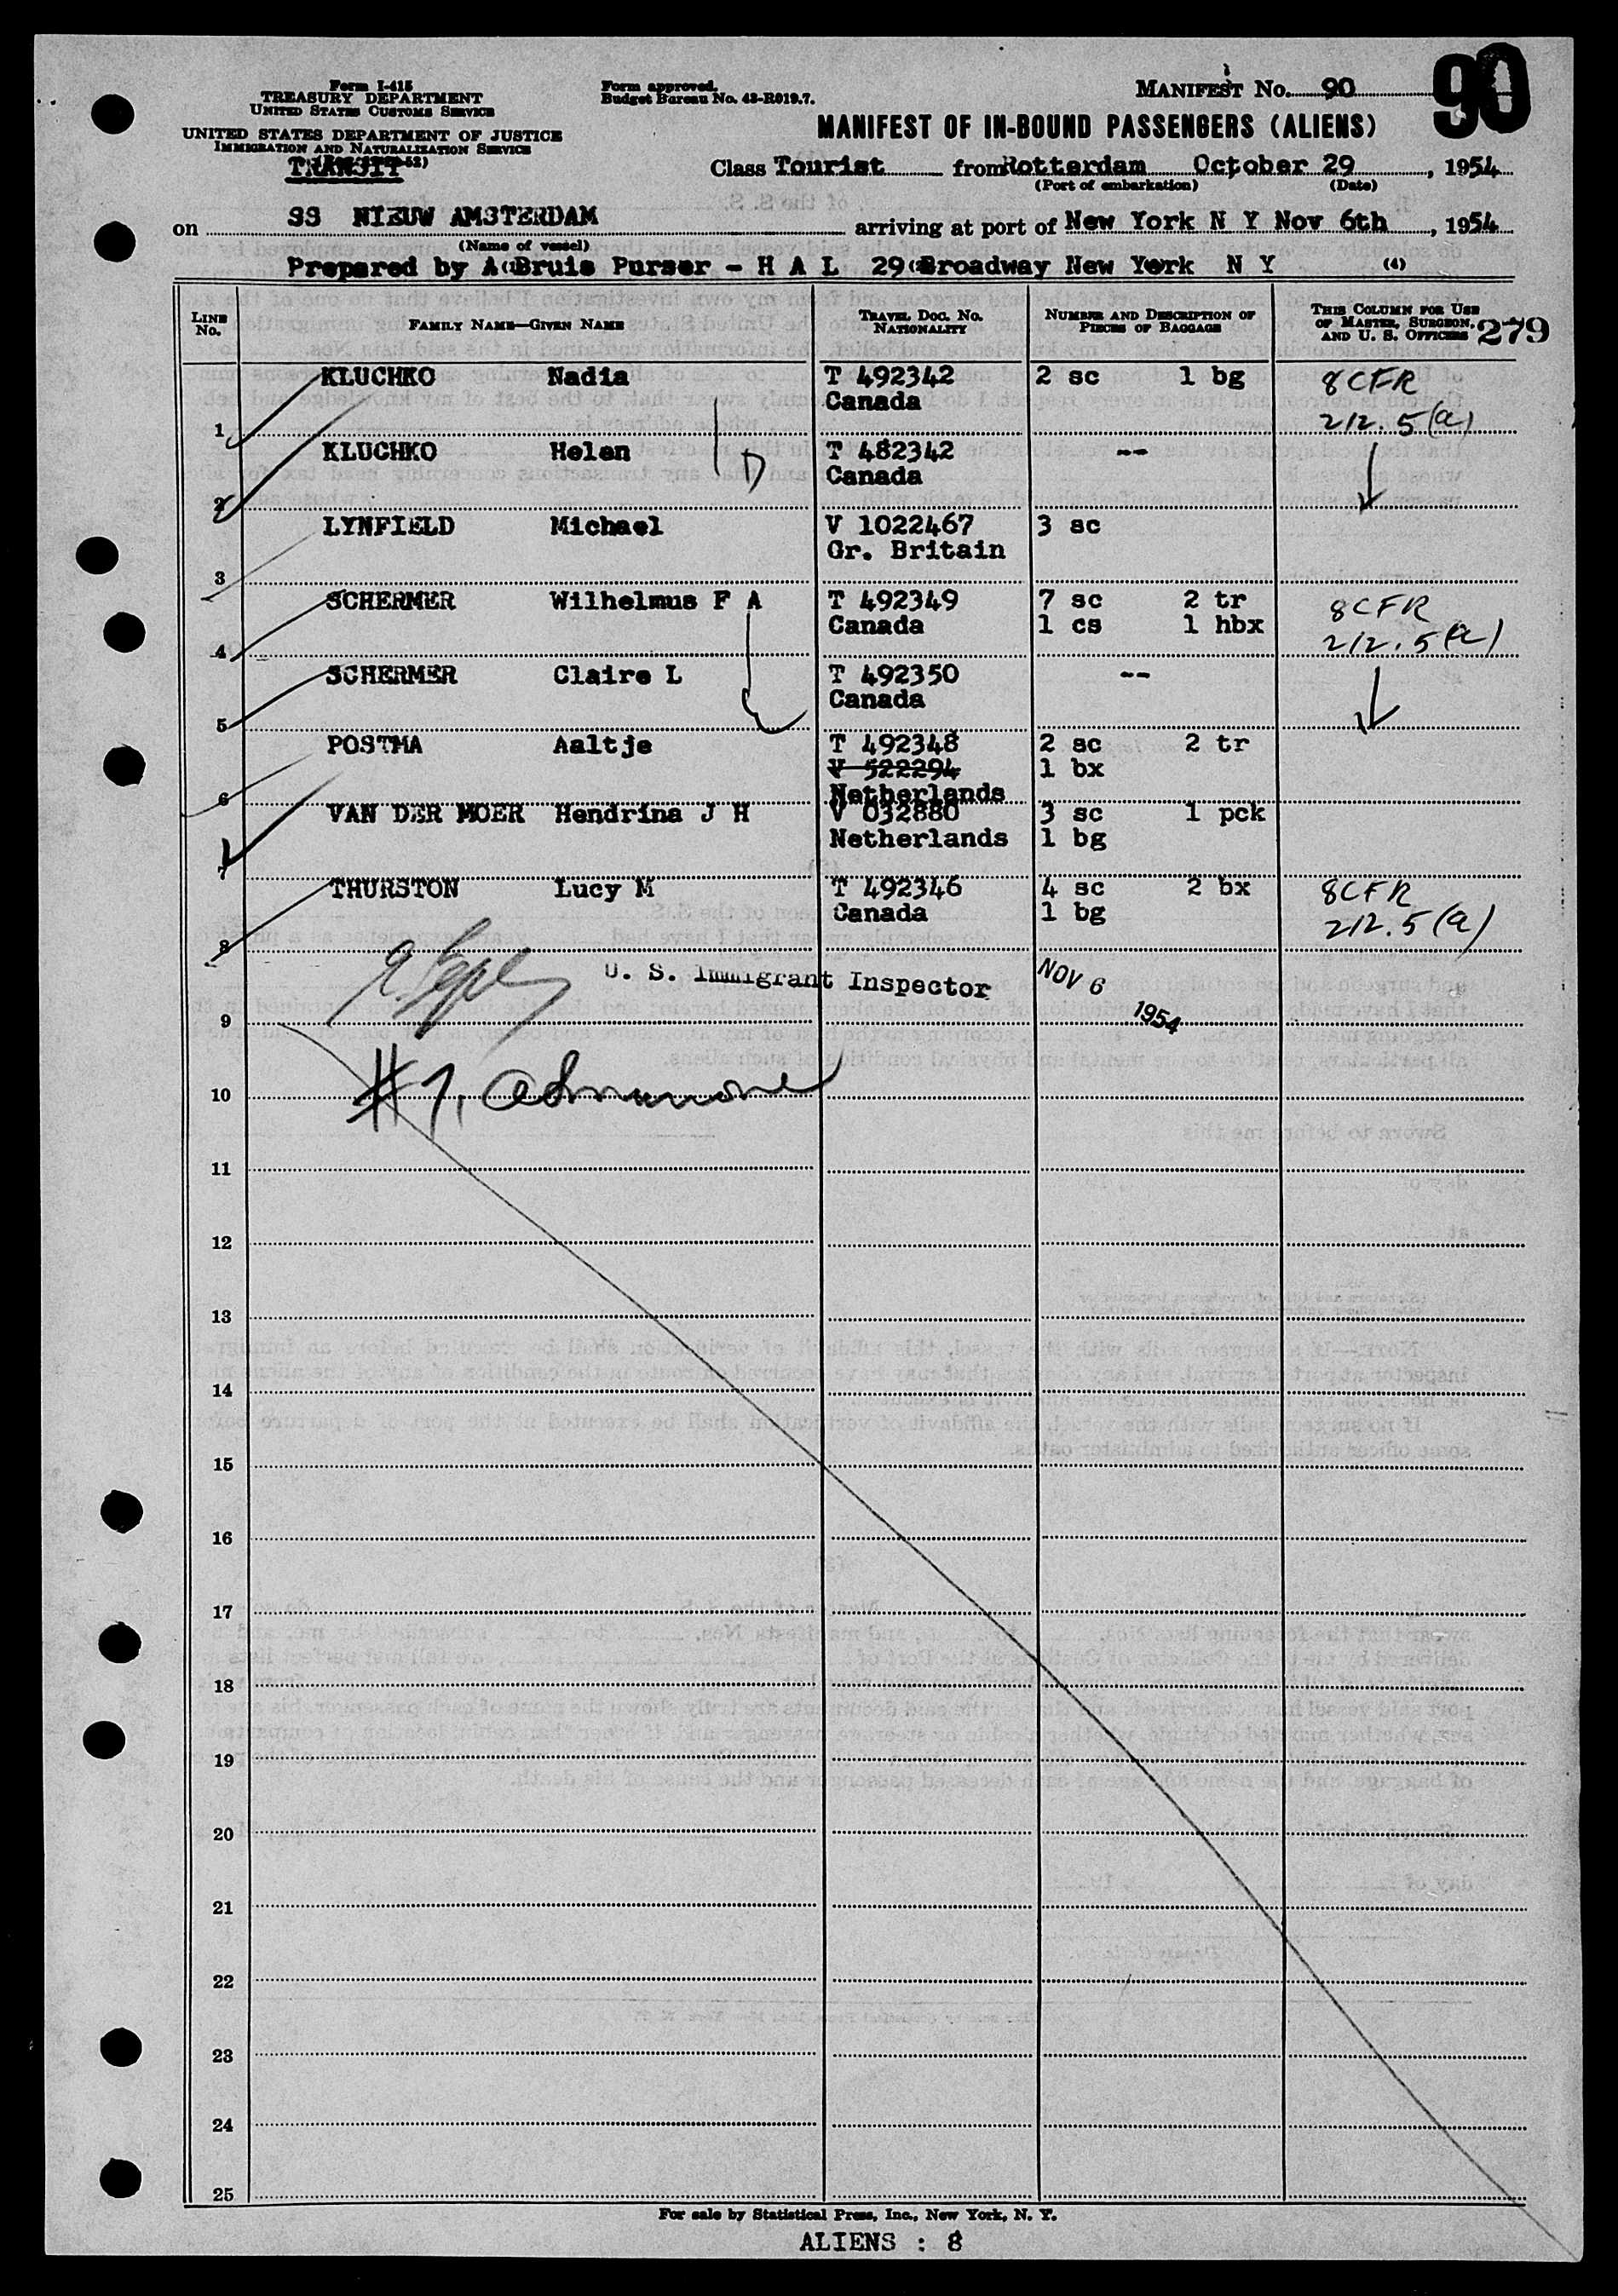 Form I-415
TREASURY DEPARTMENT
UNITED STATES CUSTOMS SERVICE
UNITED STATES DEPARTMENT OF JUSTICE
IMMIGRATION AND NATURALIZATION SERVICE
TRANSIT
Form approved.
Budget Bureau No. 43-R019.7.
MANIFEST NO. 90
90
MANIFEST OF IN-BOUND PASSENGERS (ALIENS)
Class Tourist from Rotterdam October 29, 1954
(Port of embarkation) (Date)
on SS NIEUW AMSTERDAM arriving at port of New York N Y Nov 6th, 1954
(Name of vessel)
Prepared by A Bruis Purser - H A L 29 Broadway New York N Y (4)
LINE No. FAMILY NAME—GIVEN NAME TRAVEL DOC. NO. NATIONALITY NUMBER AND DESCRIPTION OF PIECES OF BAGGAGE THIS COLUMN FOR USE OF MASTER, SURGEON, AND U. S. OFFICERS 279
KLUCHKO Nadia T 492342 2 sc 1 bg 8 CFR
1 Canada 212.5(a)
KLUCHKO Helen T 482342 --
2 Canada
LYNFIELD Michael V 1022467 3 sc
3 Gr. Britain
SCHERMER Wilhelmus F A T 492349 7 sc 2 tr 8 CFR
4 Canada 1 cs 1 hbx 212.5(a)
SCHERMER Claire L T 492350 --
5 Canada
POSTMA Aaltje T 492348 2 sc 2 tr
V 522294 1 bx
6 Netherlands
VAN DER MOER Hendrina J H V 032880 3 sc 1 pck
7 Netherlands 1 bg
THURSTON Lucy M T 492346 4 sc 2 bx 8 CFR
8 Canada 1 bg 212.5(a)
U. S. Immigrant Inspector NOV 6 1954
9
10
11
12
13
14
15
16
17
18
19
20
21
22
23
24
25
For sale by Statistical Press, Inc., New York, N. Y.
ALIENS : 8